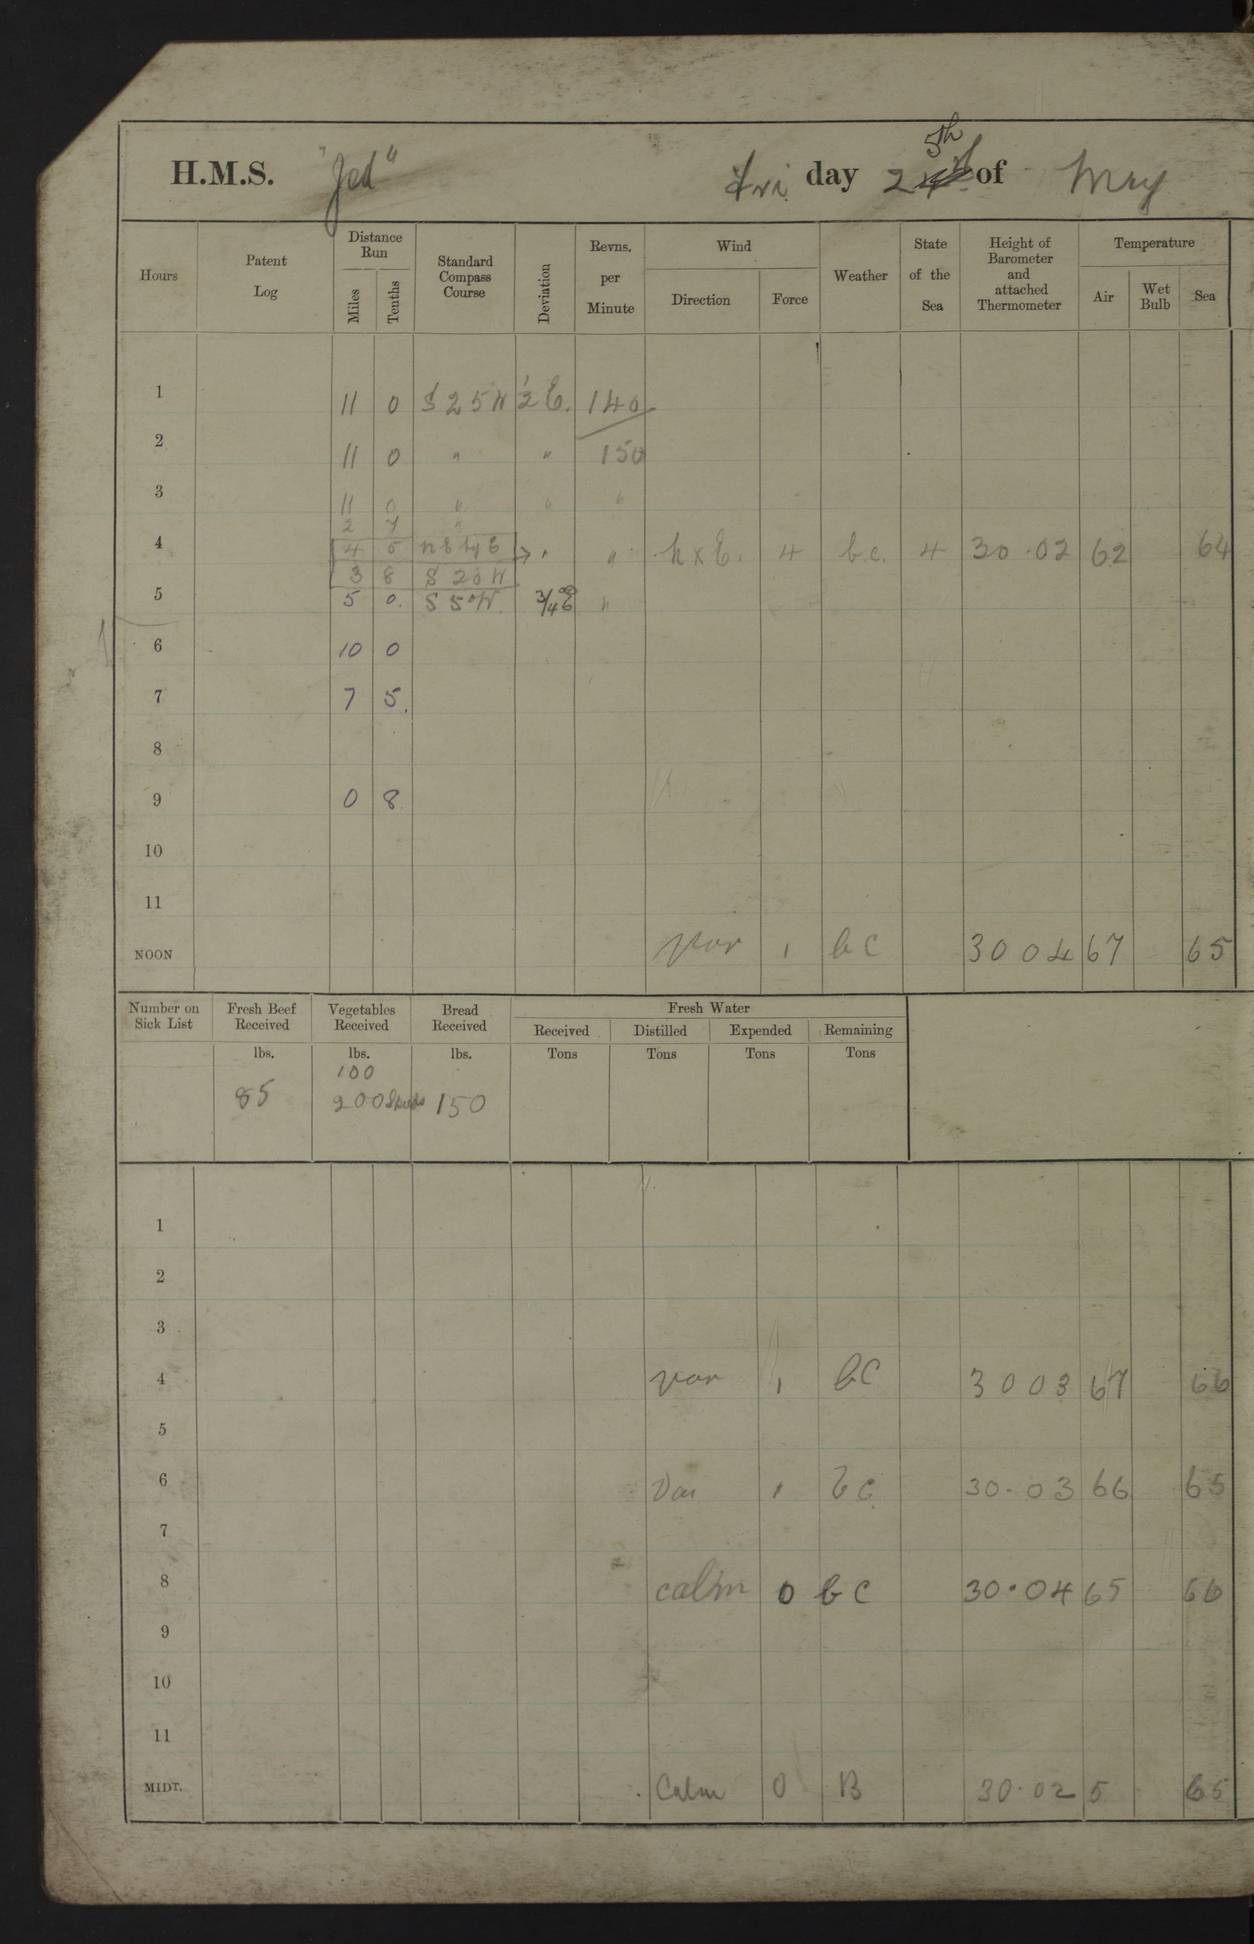 H.M.S. "Jed" Fri day 25th of May
Hours
Patent Log
Distance Run
Miles
Tenths
Standard Compass Course
Deviation
Revns. per Minute
Wind
Direction
Force
Weather
State of the Sea
Height of Barometer and attached Thermometer
Temperature
Air
Wet Bulb
Sea
1 11 0 S 25 W ½ E. 140
2 11 0 " " 150
3 11 0 " " "
2 7 "
4 4 5 N E by E " " N x E. 4 b.c. 4 30.02 62 64
3 8 S 20 W
5 5 0. S 5 W. ¾ E "
6 10 0
7 7 5.
8
9 0 8
10
11
NOON Var 1 b C 30 04 67 65
Number on Sick List
Fresh Beef Received
Vegetables Received
Bread Received
Fresh Water
Received
Distilled
Expended
Remaining
lbs. lbs. lbs. Tons Tons Tons Tons
100
85 200 Spuds 150
1
2
3
4 Var 1 b C 30 03 67 66
5
6 Var 1 b c 30.03 66 65
7
8 calm 0 b c 30.04 65 66
9
10
11
MIDT. Calm 0 B 30.02 5 65